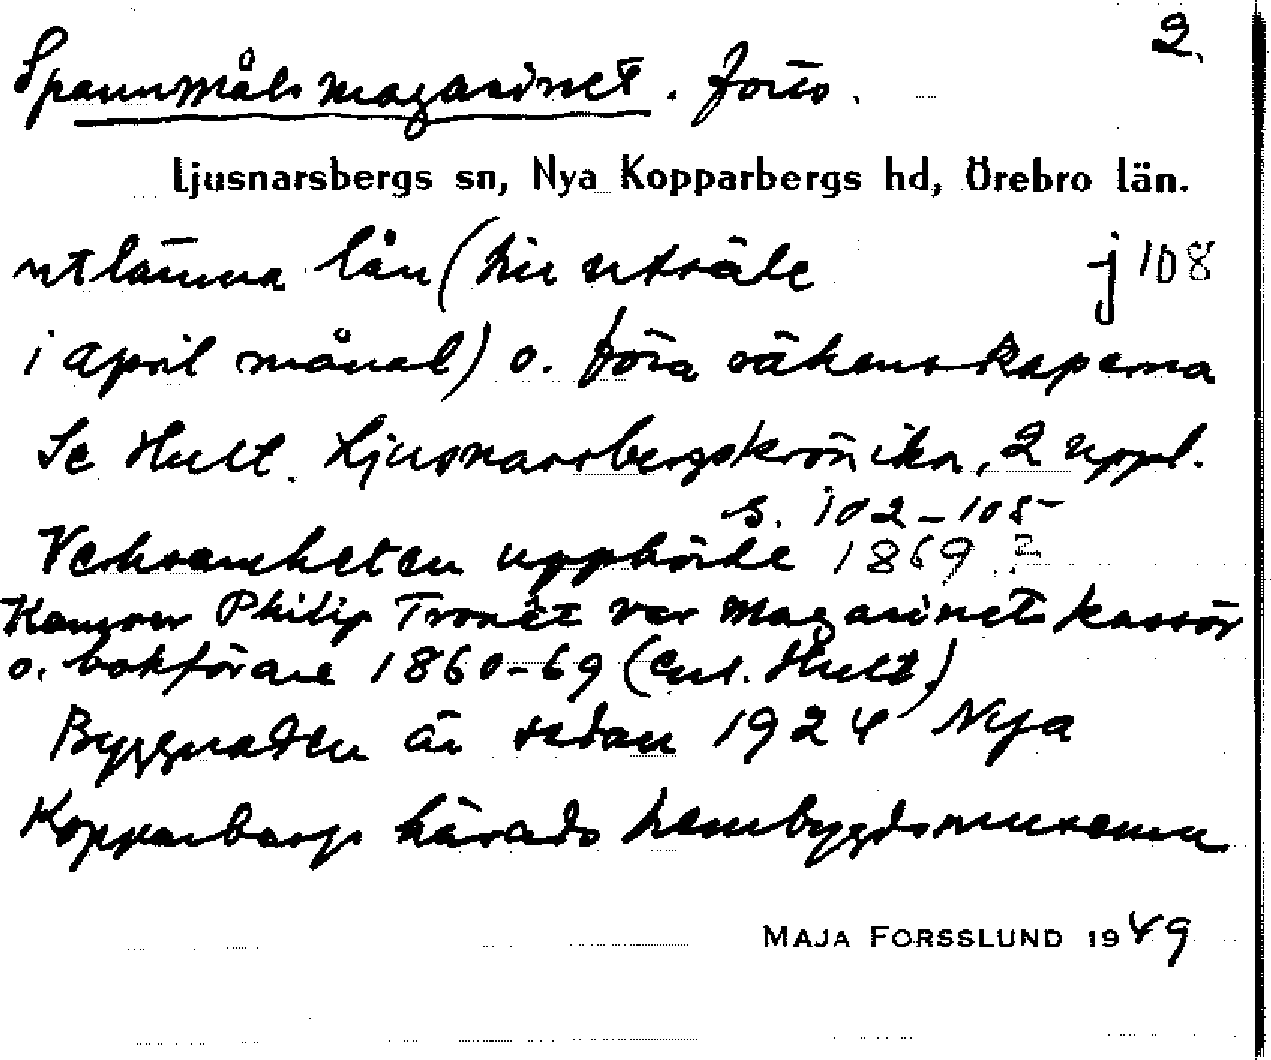 2.
Spannmålsmagasinet. forts.
Ljusnarsbergs sn, Nya Kopparbergs hd, Örebro län.
utlämna lån (hit utsäde j 108
i april månad) o. föra räkenskaperna
Se Hult. Ljusnarsbergskrönika, 2 uppl.
s. 102-105
Verksamheten upphörde 1869 ?
Philip Tronêt var magasinets kassör
o. bokförare 1860-69 (enl. Hult.)
Byggnaden är sedan 1924 Nya
Kopparbergs härads hembygdsmuseum
MAJA FORSSLUND 1949